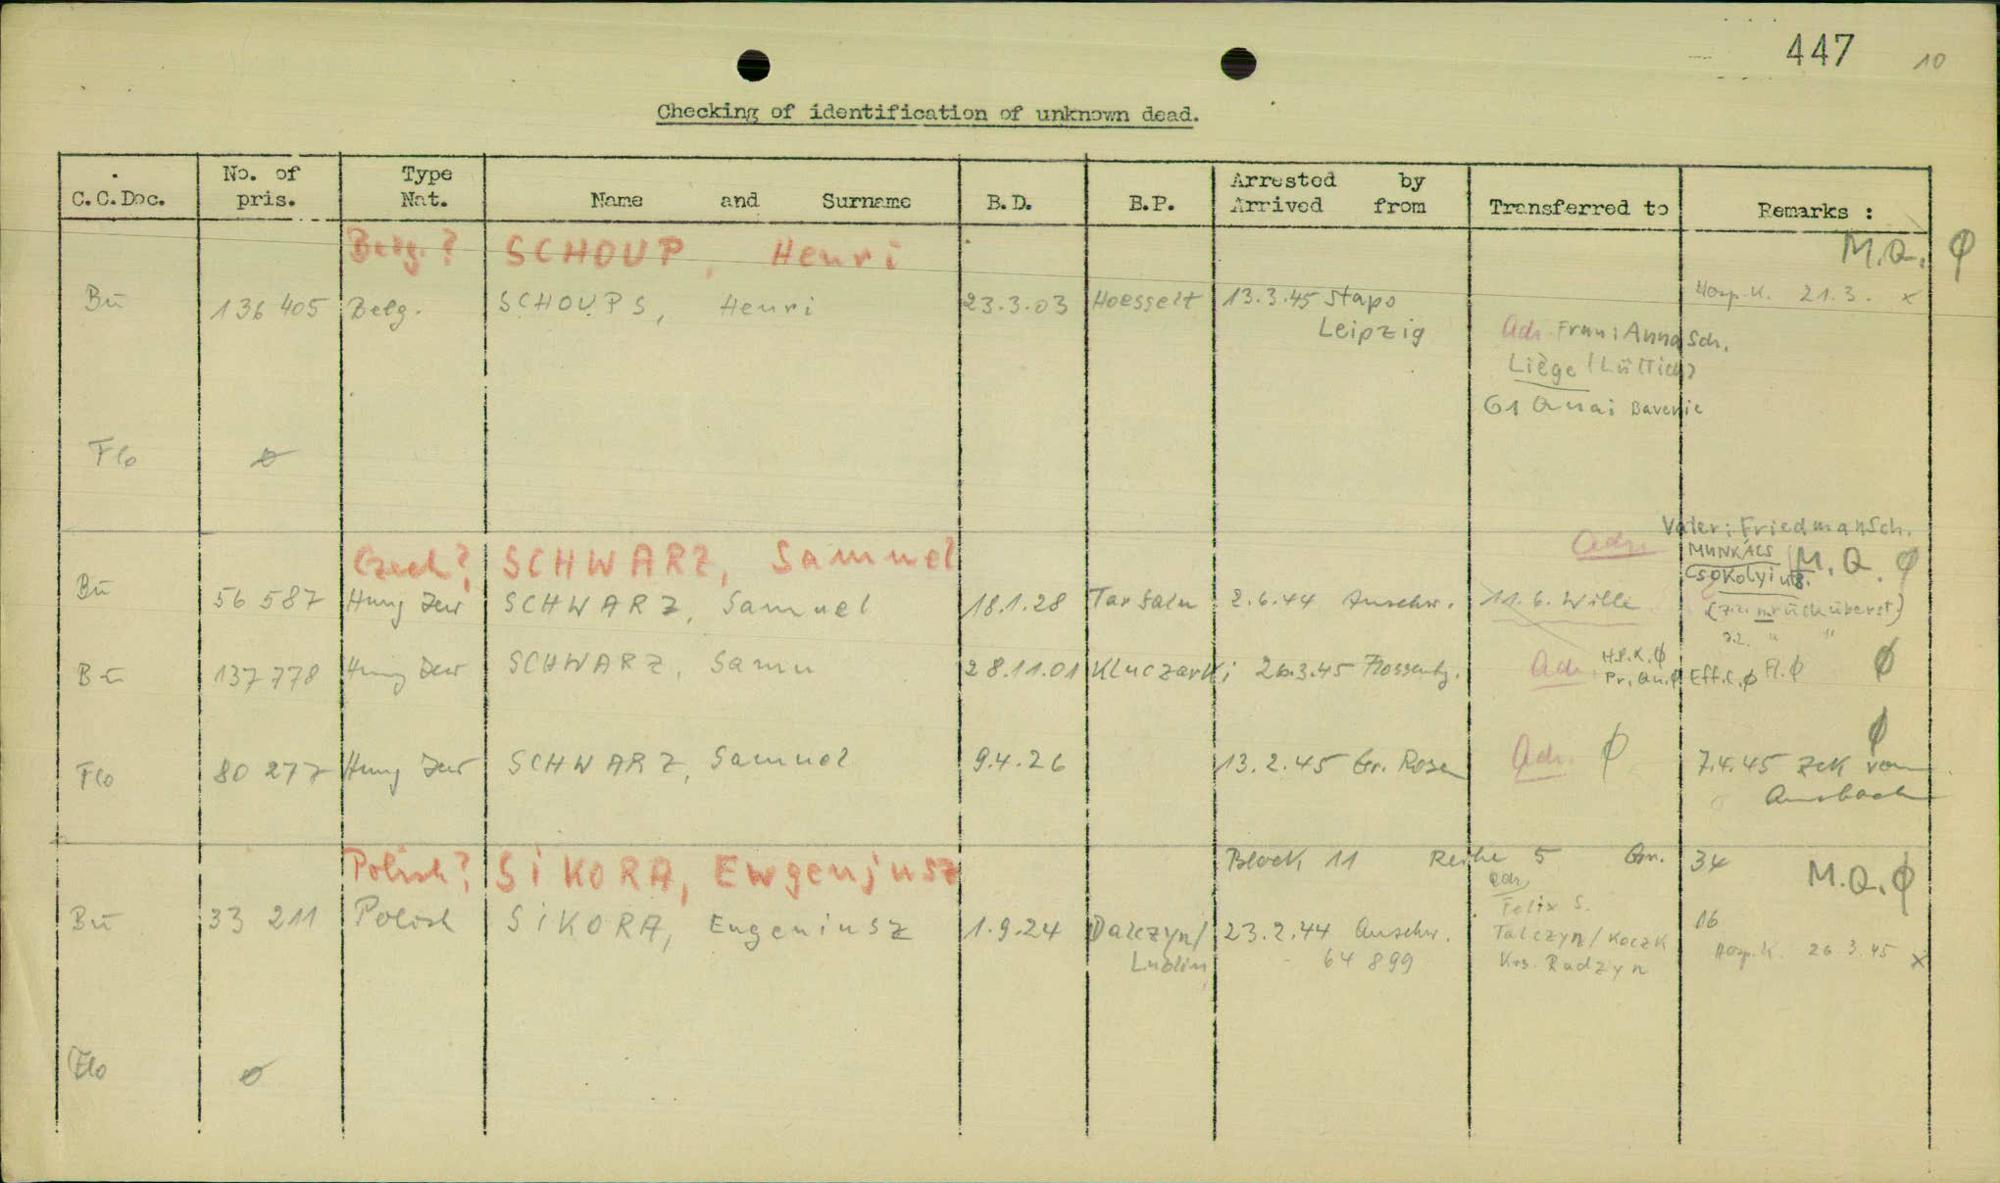 447 10
Checking of identification of unknown dead.
C.C.Doc. No. of pris. Type Nat. Name and Surname B.D. B.P. Arrested by Arrived from Transferred to Remarks :
Belg.? SCHOUP, Henri M.Q. ϕ
Bu 136 405 Belg. SCHOUPS, Henri 23.3.03 Hoesselt 13.3.45 Stapo Hosp.K. 21.3. x
Leipzig Adr. Frau: Anna Sch.
Liège (Lüttich)
61 Quai Baverie
Flo ø
Vater: Friedman Sch.
Czech? SCHWARZ, Samuel Adr. MUNKÁCS M.Q. ϕ
Csokolyi utg.
Bu 56 587 Hung Jew SCHWARZ, Samuel 18.1.28 2.6.44 Auschw. 11.6. Wille
Bu 137 778 Hung Jew SCHWARZ, Samu 28.11.01 Kluczarki 26.3.45 Flossenbg. Adr. H.K.ϕ Pr.Qu.ϕ Eff.C.ϕ Fl.ϕ ϕ
Flo 80 277 Hung Jew SCHWARZ, Samuel 9.4.26 13.2.45 Gr. Rosen Adr. ϕ ϕ 7.4.45 zck von
Ansbach
Polish? SIKORA, Ewgenjusz Block 11 Reihe 5 Gr. 34 M.Q. ϕ
Adr.
Felix S.
Bu 33 211 Polish SIKORA, Eugeniusz 1.9.24 Dalczyn/ 23.2.44 Auschw. Talczyn/Koczk 16
Lublin 64 899 Krs. Radzyn Hosp.K. 26.3.45 x
Flo ø